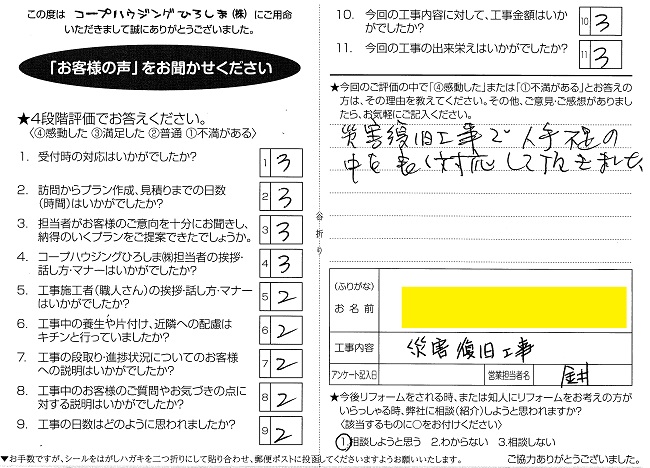 この度は コープハウジングひろしま(株) にご用命
いただきまして誠にありがとうございました。
「お客様の声」をお聞かせください
★4段階評価でお答えください。
〈④感動した ③満足した ②普通 ①不満がある〉
1. 受付時の対応はいかがでしたか? 1 3
2. 訪問からプラン作成、見積りまでの日数
(時間)はいかがでしたか? 2 3
3. 担当者がお客様のご意向を十分にお聞きし、
納得のいくプランをご提案できたでしょうか。 3 3
4. コープハウジングひろしま㈱担当者の挨拶・
話し方・マナーはいかがでしたか? 4 3
5. 工事施工者(職人さん)の挨拶・話し方・マナー
はいかがでしたか? 5 2
6. 工事中の養生や片付け、近隣への配慮は
キチンと行っていましたか? 6 2
7. 工事の段取り・進捗状況についてのお客様
への説明はいかがでしたか? 7 2
8. 工事中のお客様のご質問やお気づきの点に
対する説明はいかがでしたか? 8 2
9. 工事の日数はどのように思われましたか? 9 2
谷折り
10. 今回の工事内容に対して、工事金額はいか
がでしたか? 10 3
11. 今回の工事の出来栄えはいかがでしたか? 11 3
★今回のご評価の中で「④感動した」または「①不満がある」とお答えの
方は、その理由を教えてください。その他、ご意見・ご感想がありまし
たら、お気軽にご記入ください。
災害復旧工事で人手不足の
中を良く対応して頂きました
(ふりがな)
お名前
工事内容 災害復旧工事
アンケート記入日 営業担当者名 金井
★今後リフォームをされる時、または知人にリフォームをお考えの方が
いらっしゃる時、弊社に相談(紹介)しようと思われますか?
〈該当するものに○をお付けください〉
1.相談しようと思う 2.わからない 3.相談しない
▼お手数ですが、シールをはがしハガキを二つ折りにして貼り合わせ、郵便ポストに投函してくださいますようお願いいたします。 ご協力ありがとうございました。